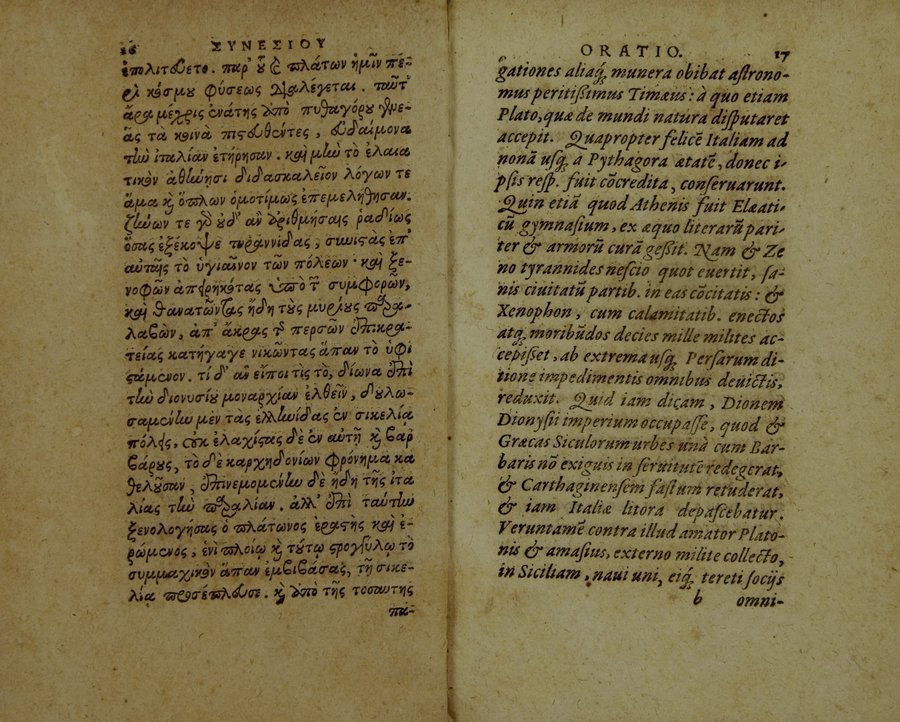 16 ΣΥΝΕΣΙΟΥ
ἐπολιτεύετο. παρ' οὗ ϗ πλάτων ἡμῖν πέ-
ρὶ κόσμου φύσεως διαλέγεται. ταῦτ'
ἄρα μέχρις ἐνάτης ἀπὸ πυθαγόρου γενε-
ᾶς τὰ κοινὰ πιστευθέντες, εὐδαίμονα
τὴν ἰταλίαν ἐτήρησαν. καὶ μὴν τὸ ἐλεα
τικὸν ἀθήνησι διδασκαλεῖον λόγων τε
ἅμα ϗ ὅπλων ὁμοτίμως ἐπεμελήθησαν.
ζήνων τε γὰρ οὐδ' ἂν ἀριθμήσαις ῥαδίως
ὅσας ἐξέκοψε τυραννίδας, συστὰς ἐπ'
αὐταῖς τὸ ὑγιαῖνον τῶν πόλεων· καὶ ξε-
νοφῶν ἀπειρηκότας ὑπὸ τῶν συμφορῶν,
καὶ θανατῶντας ἤδη τοὺς μυρίους παρα-
λαβὼν, ἀπ' ἄκρας τῆς περσῶν ἐπικρα-
τείας κατήγαγε νικῶντας ἅπαν τὸ ὑφι
στάμενον. τί δ' ἂν εἴποι τις τὸ, δίωνα ἐπὶ
τὴν διονυσίου μοναρχίαν ἐλθεῖν, δουλω-
σαμένην μὲν τὰς ἑλληνίδας ἐν σικελίᾳ
πόλεις, οὐκ ἐλαχίστας δὲ ἐν αὐτῇ ϗ βαρ
βάρους, τὸ δὲ καρχηδονίων φρόνημα κα
θελοῦσαν, ἐπινεμομένην δὲ ἤδη τῆς ἰτα
λίας τὴν παραλίαν. ἀλλ' ἐπὶ ταύτην
ξενολογήσας ὁ πλάτωνος ἐραστὴς καὶ ἐ-
ρώμενος, ἑνὶ πλοίῳ ϗ τούτῳ στρογγύλῳ τὸ
συμμαχικὸν ἅπαν ἐμβιβάσας, τῇ σικε-
λίᾳ προσέπλευσε. ϗ ἀπὸ τῆς τοσαύτης
πα-
ORATIO. 17
gationes aliaq́; munera obibat astrono-
mus peritißimus Timæus: à quo etiam
Plato, quæ de mundi natura disputaret
accepit. Quapropter felicē Italiam ad
nonā usq́; à Pythagora ætatē, donec i-
psis resp. fuit cōcredita, conseruarunt.
Quin etiā quod Athenis fuit Elæati-
cū gymnasium, ex æquo literarū pari-
ter & armorū curā geßit. Nam & Ze
no tyrannides nescio quot euertit, sa-
nis ciuitatū partib. in eas cōcitatis: &
Xenophon, cum calamitatib. enectos
atq́; moribūdos decies mille milites ac-
cepisset, ab extrema usq́; Persarum di-
tione impedimentis omnibus deuictis,
reduxit. Quid iam dicam, Dionem
Dionysii imperium occupasse, quod &
Græcas Siculorum urbes unà cum Bar-
baris nō exiguis in seruitutē redegerat,
& Carthaginensem fastum retuderat,
& iam Italiæ litora depascebatur.
Veruntamē contra illud amator Plato-
nis & amasius, externo milite collecto,
in Siciliam, naui uni, eiq́; tereti socijs
b omni-